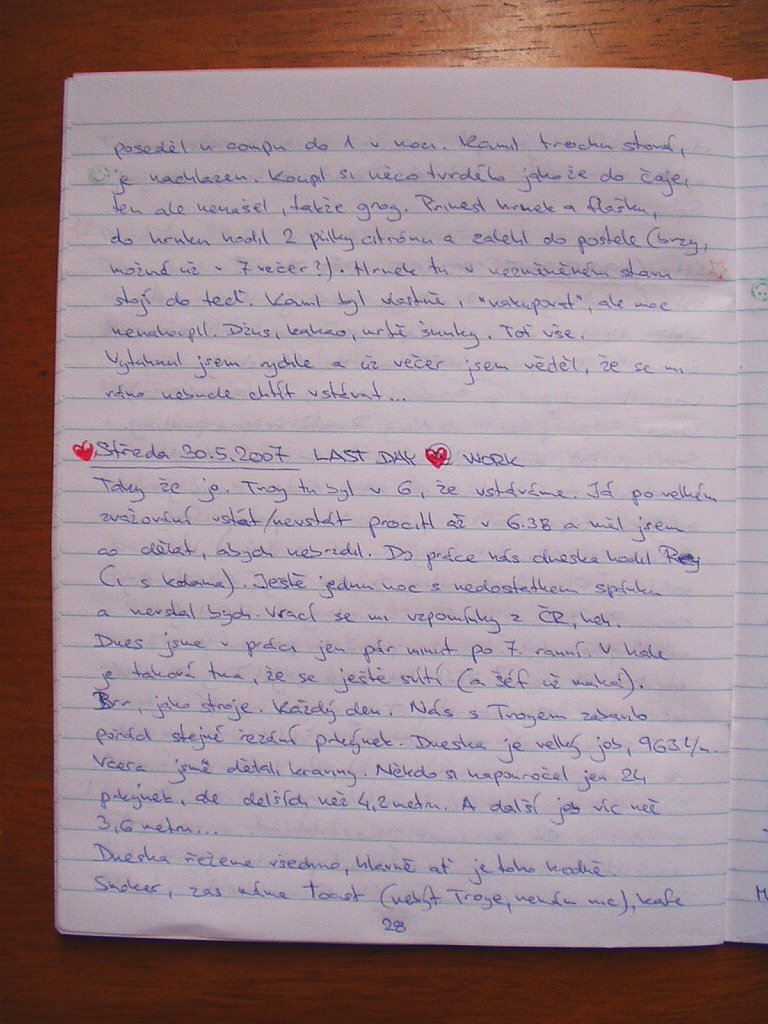 poseděl u compu do 1 v noci. Kamil trochu stoná,
je nachlazen. Koupil si něco tvrdého jakože do čaje,
ten ale nenašel, takže grog. Přinesl hrnek a flašku,
do hrnku hodil 2 půlky citrónu a zalehl do postele (brzy,
možná už v 7 večer?). Hrnek tu v nezměněném stavu
stojí do teď. Kamil byl vlastně i "nakupovat", ale moc
nenakoupil. Džus, kakao, určě šunky. Toť vše.
Vytuhnul jsem rychle a už večer jsem věděl, že se mi
ráno nebude chtít vstávat...
Středa 30.5.2007 LAST DAY WORK
Taky že jo. Troy tu byl v 6, že vstáváme. Já po velkém
zvažování vstát/nevstát procitl až v 6.38 a měl jsem
co dělat, abych nebrzdil. Do práce nás dneska hodil Rey
(i s kolama). Ještě jednu noc s nedostatkem spánku
a nevstal bych. Vrací se mi vzpomínky z ČR, heh.
Dnes jsme v práci jen pár minut po 7. ranní. V hale
je taková tma, že se ještě svítí (a šéf už maká).
Brr, jako stroje. Každý den. Nás s Troyem zabavilo
pořád stejné řezání prkýnek. Dneska je velký job, 963
Včera jsme dělali kraviny. Někdo si naporoučel jen 24
prkýnek, ale delších než 4,2 metru. A další job víc než
3,6 metru...
Dneska řežeme všechno, hlavně ať je toho hodně.
Smoker, zas máme toast (nebýt Troye, nemám nic), kafe
28